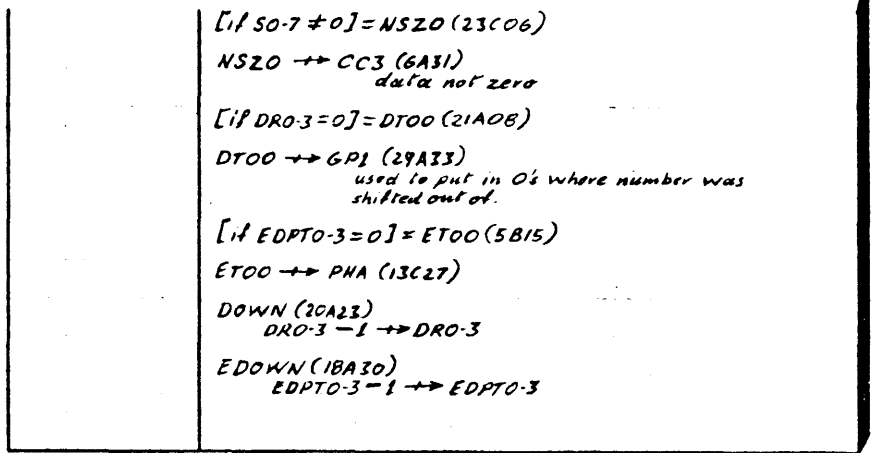 [if S0-7 ≠ 0] = NSZ0 (23C06)
NSZ0 ↛ CC3 (6A31)
data not zero
[if DR0-3 = 0] = DT00 (21A08)
DT00 ↛ GP1 (29A33)
used to put in 0's where number was
shifted out of.
[if EDPT0-3 = 0] = ET00 (5B15)
ET00 ↛ PHA (13C27)
DOWN (20A23)
DR0-3 - 1 ↛ DR0-3
EDOWN (18A30)
EDPT0-3 - 1 ↛ EDPT0-3